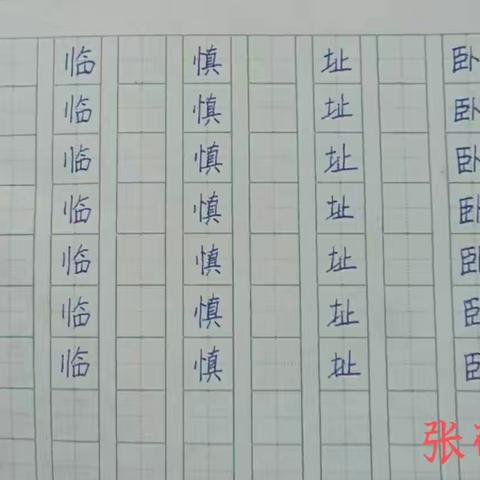 临 慎 址 卧
临 慎 址 卧
临 慎 址 卧
临 慎 址 卧
临 慎 址 卧
临 慎 址 卧
临 慎 址 卧
张